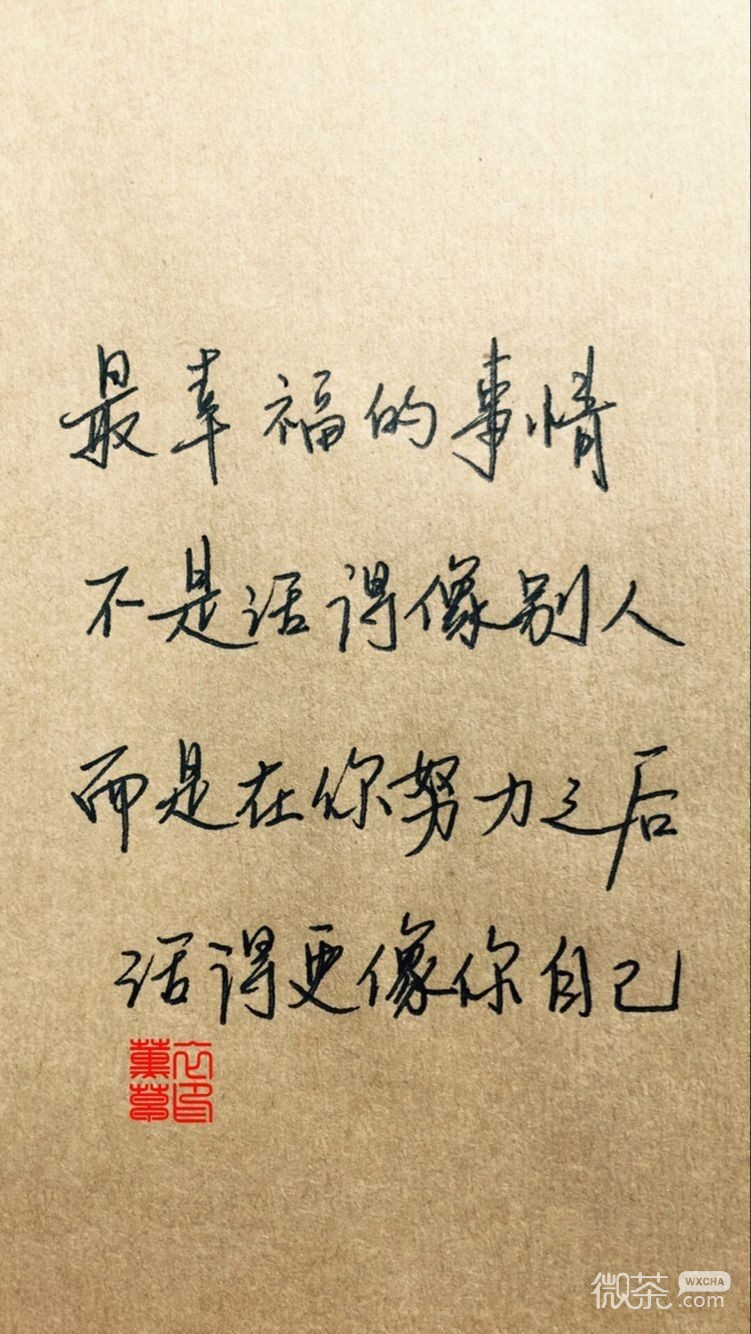 最幸福的事情
不是活得像别人
而是在你努力之后
活得更像你自己
微茶 WXCHA
.com